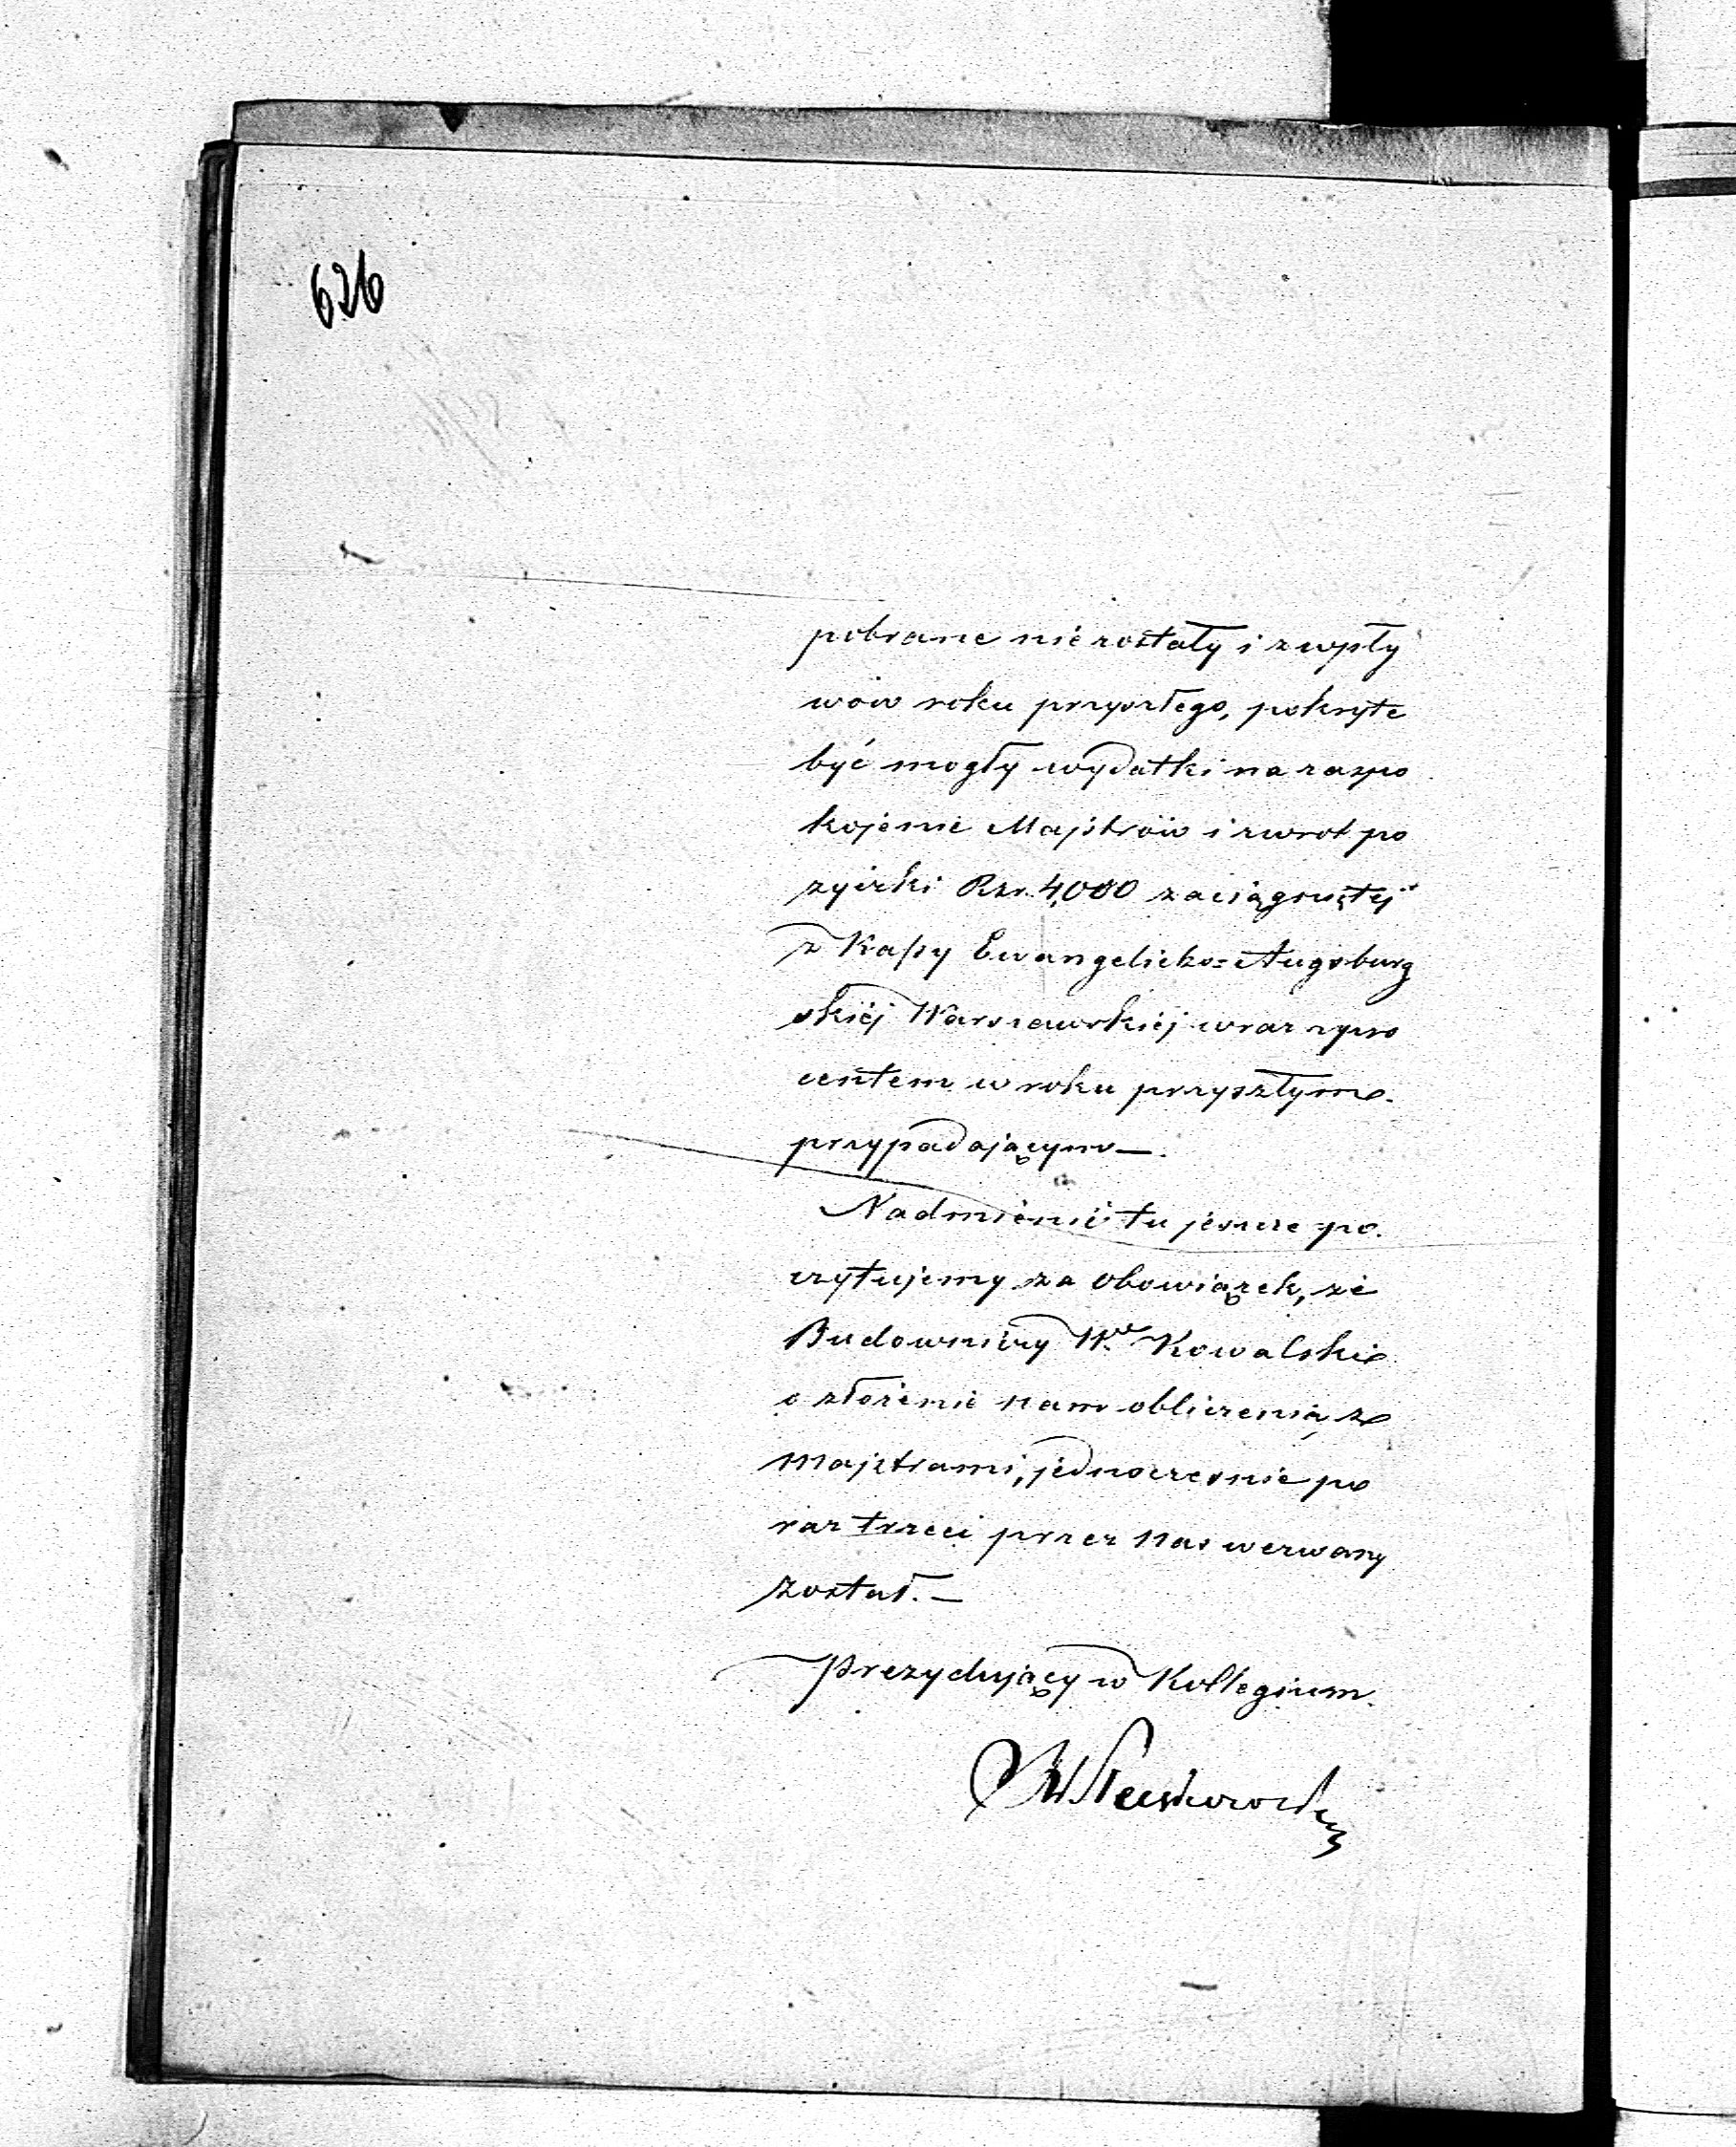 626
pobrane nie zostały i z wpły
wów roku przyszłego, pokryte
być mogły wydatki na zaspo
kojenie Majstrów i zwrot po
życzki Rsr. 4,000 zaciągniętej
z Kassy Ewangelicko=Augsburg
skiéj Warszawskiéj wraz z pro
centem w roku przyszłym
przypadającym —.
Nadmienić tu jeszcze po
czytujemy za obowiązek, że
Budowniczy Wy Kowalski
o złożenie nam obliczenia z
majstrami, jednocześnie po
raz trzeci przez nas wezwany
został. —
Prezydujący w Kollegium.